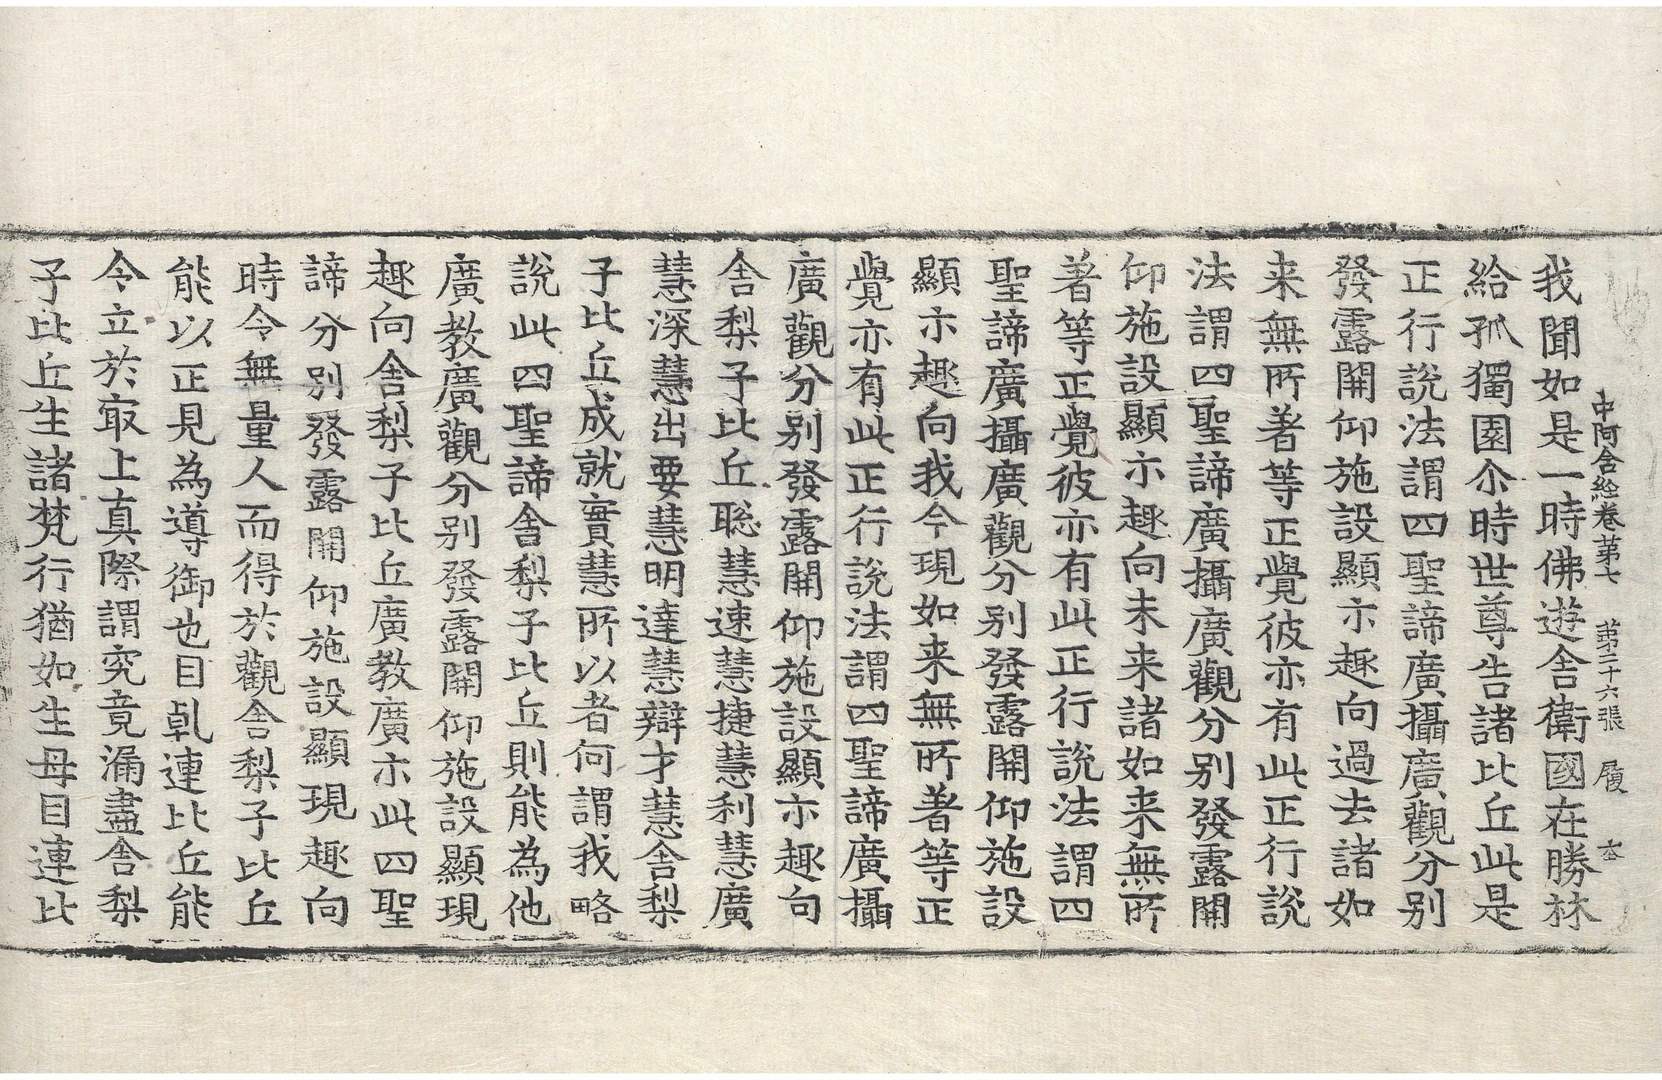 中阿含経卷第七　第二十六張　履
我聞如是一時佛遊舍衛國在勝林
給孤獨園尒時世尊告諸比丘此是
正行說法謂四聖諦廣攝廣觀分別
發露開仰施設顯示趣向過去諸如
来無所著等正覺彼亦有此正行說
法謂四聖諦廣攝廣觀分別發露開
仰施設顯示趣向未来諸如来無所
著等正覺彼亦有此正行說法謂四
聖諦廣攝廣觀分別發露開仰施設
顯示趣向我今現如来無所著等正
覺亦有此正行說法謂四聖諦廣攝
廣觀分別發露開仰施設顯示趣向
舍梨子比丘聡慧速慧捷慧利慧廣
慧深慧出要慧明達慧辯才慧舍梨
子比丘成就實慧所以者何謂我略
說此四聖諦舍梨子比丘則能為他
廣教廣觀分別發露開仰施設顯現
趣向舍梨子比丘廣教廣示此四聖
諦分別發露開仰施設顯現趣向
時令無量人而得於觀舍梨子比丘
能以正見為導御也目乹連比丘能
令立於㝡上真際謂究竟漏盡舍梨
子比丘生諸梵行猶如生母目連比